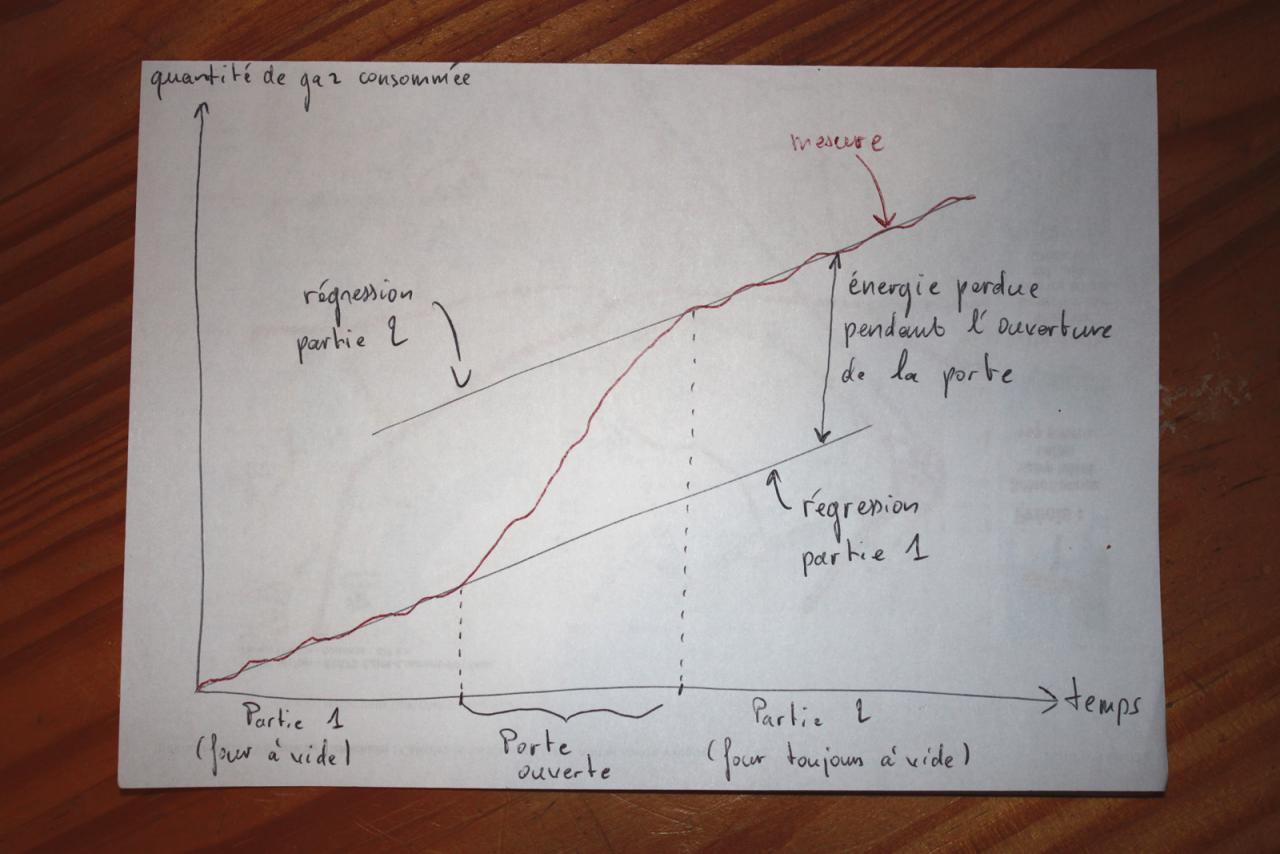 quantité de gaz consommée
mesure
régression
partie 2
énergie perdue
pendant l'ouverture
de la porte
régression
partie 1
temps
Partie 1
(four à vide)
Porte
ouverte
Partie 2
(four toujours à vide)